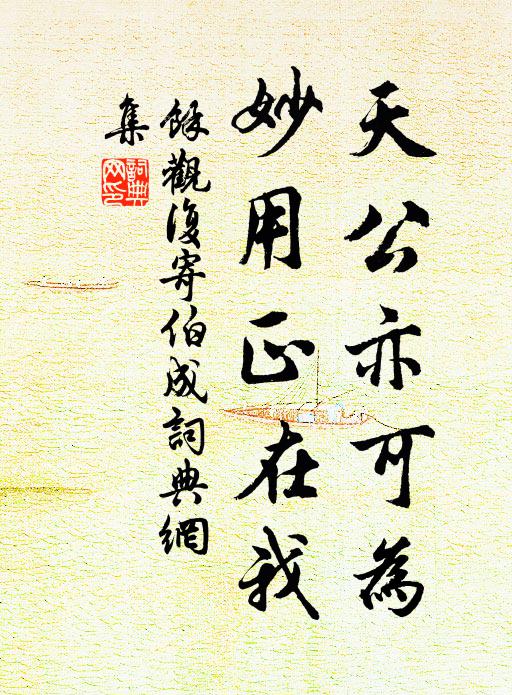 天公亦可為
妙用正在我
餘觀復寄伯成詞典網
集
詞典
網印